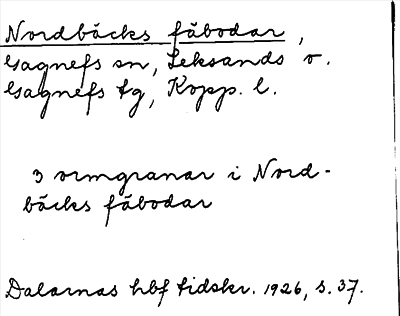 Nordbäcks fäbodar,
Gagnefs sn, Leksands o.
Gagnefs tg, Kopp. l.
3 ormgranar i Nord-
bäcks fäbodar
Dalarnas hbf tidskr. 1926, s. 37.